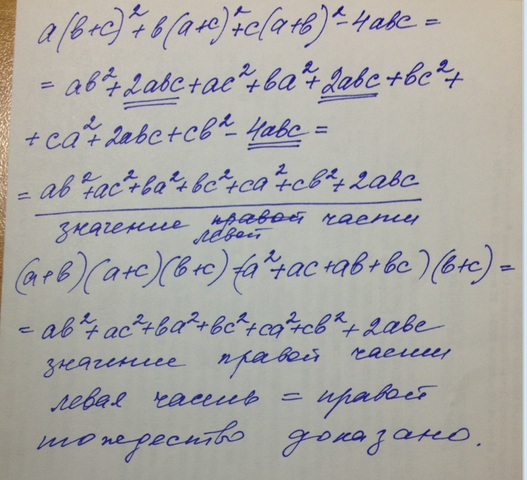 a(b+c)²+b(a+c)²+c(a+b)²-4abc=
=ab²+2abc+ac²+ba²+2abc+bc²+
+ca²+2abc+cb²-4abc=
=ab²+ac²+ba²+bc²+ca²+cb²+2abc
значение правой части
левой
(a+b)(a+c)(b+c)=(a²+ac+ab+bc)(b+c)=
=ab²+ac²+ba²+bc²+ca²+cb²+2abc
значение правой части
левая часть = правой
тождество доказано.